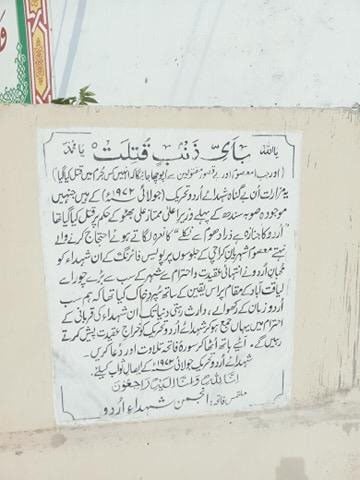 یا اللہ بِاَیِّ ذَنۡبٍ قُتِلَتۡ یا محمدؐ
(اور جب معصوم اور بے قصور مقتولین سے پوچھا جائیگا کہ انہیں کس جُرم میں قتل کیا گیا)
یہ مزارات اُن بے گناہ شہدائے اُردو تحریک (جولائی ۱۹۷۲ء) کے ہیں جنہیں
موجودہ صوبہ سندھ کے پہلے وزیر اعلیٰ ممتاز علی بھٹو کے حکم پر قتل کیا گیا تھا
"اُردو کا جنازہ ہے ذرا دھوم سے نکلے" کا نعرہ لگاتے ہوئے احتجاج کرنے والے
نہتے معصوم شہریانِ کراچی کے جلوسوں پر پولیس فائرنگ کے ان شہداء کو
محبانِ اُردو نے انتہائی عقیدت و احترام سے شہر کے سب سے بڑے چوراہے
لیاقت آباد کے مقام پر اس یقین کے ساتھ سپردِ خاک کیا تھا کہ ہم سب
اُردو زبان کے رکھوالے، وارث رہتی دنیا تک ان شہداء کی قربانی کے
احترام میں یہاں جمع ہو کر شہدائے اُردو تحریک کو خراجِ عقیدت پیش کرتے
رہیں گے۔ آئیے ہاتھ اٹھا کر سورۃ فاتحہ تلاوت اور دعا کریں۔
شہدائے اُردو تحریک جولائی ۱۹۷۲ء کے ایصالِ ثواب کیلئے۔
اِنَّا لِلّٰہِ وَاِنَّا اِلَیۡہِ رَاجِعُوۡنَ
ملتمس فاتحہ: انجمن شہداءِ اُردو